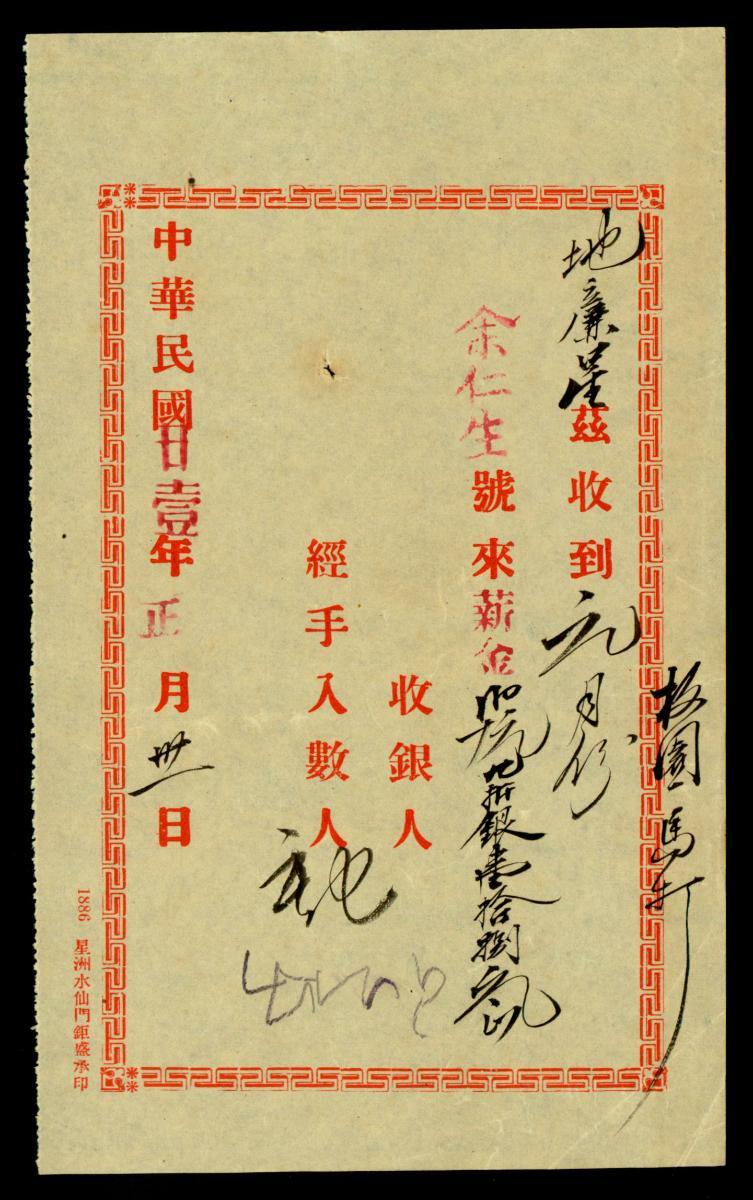 園馬打
地廉星茲收到元月份
余仁生號來薪金九折銀壹拾捌元
收銀人
經手入數人
中華民國廿壹年正月卅一日
1886 星洲水仙門鉅盛承印